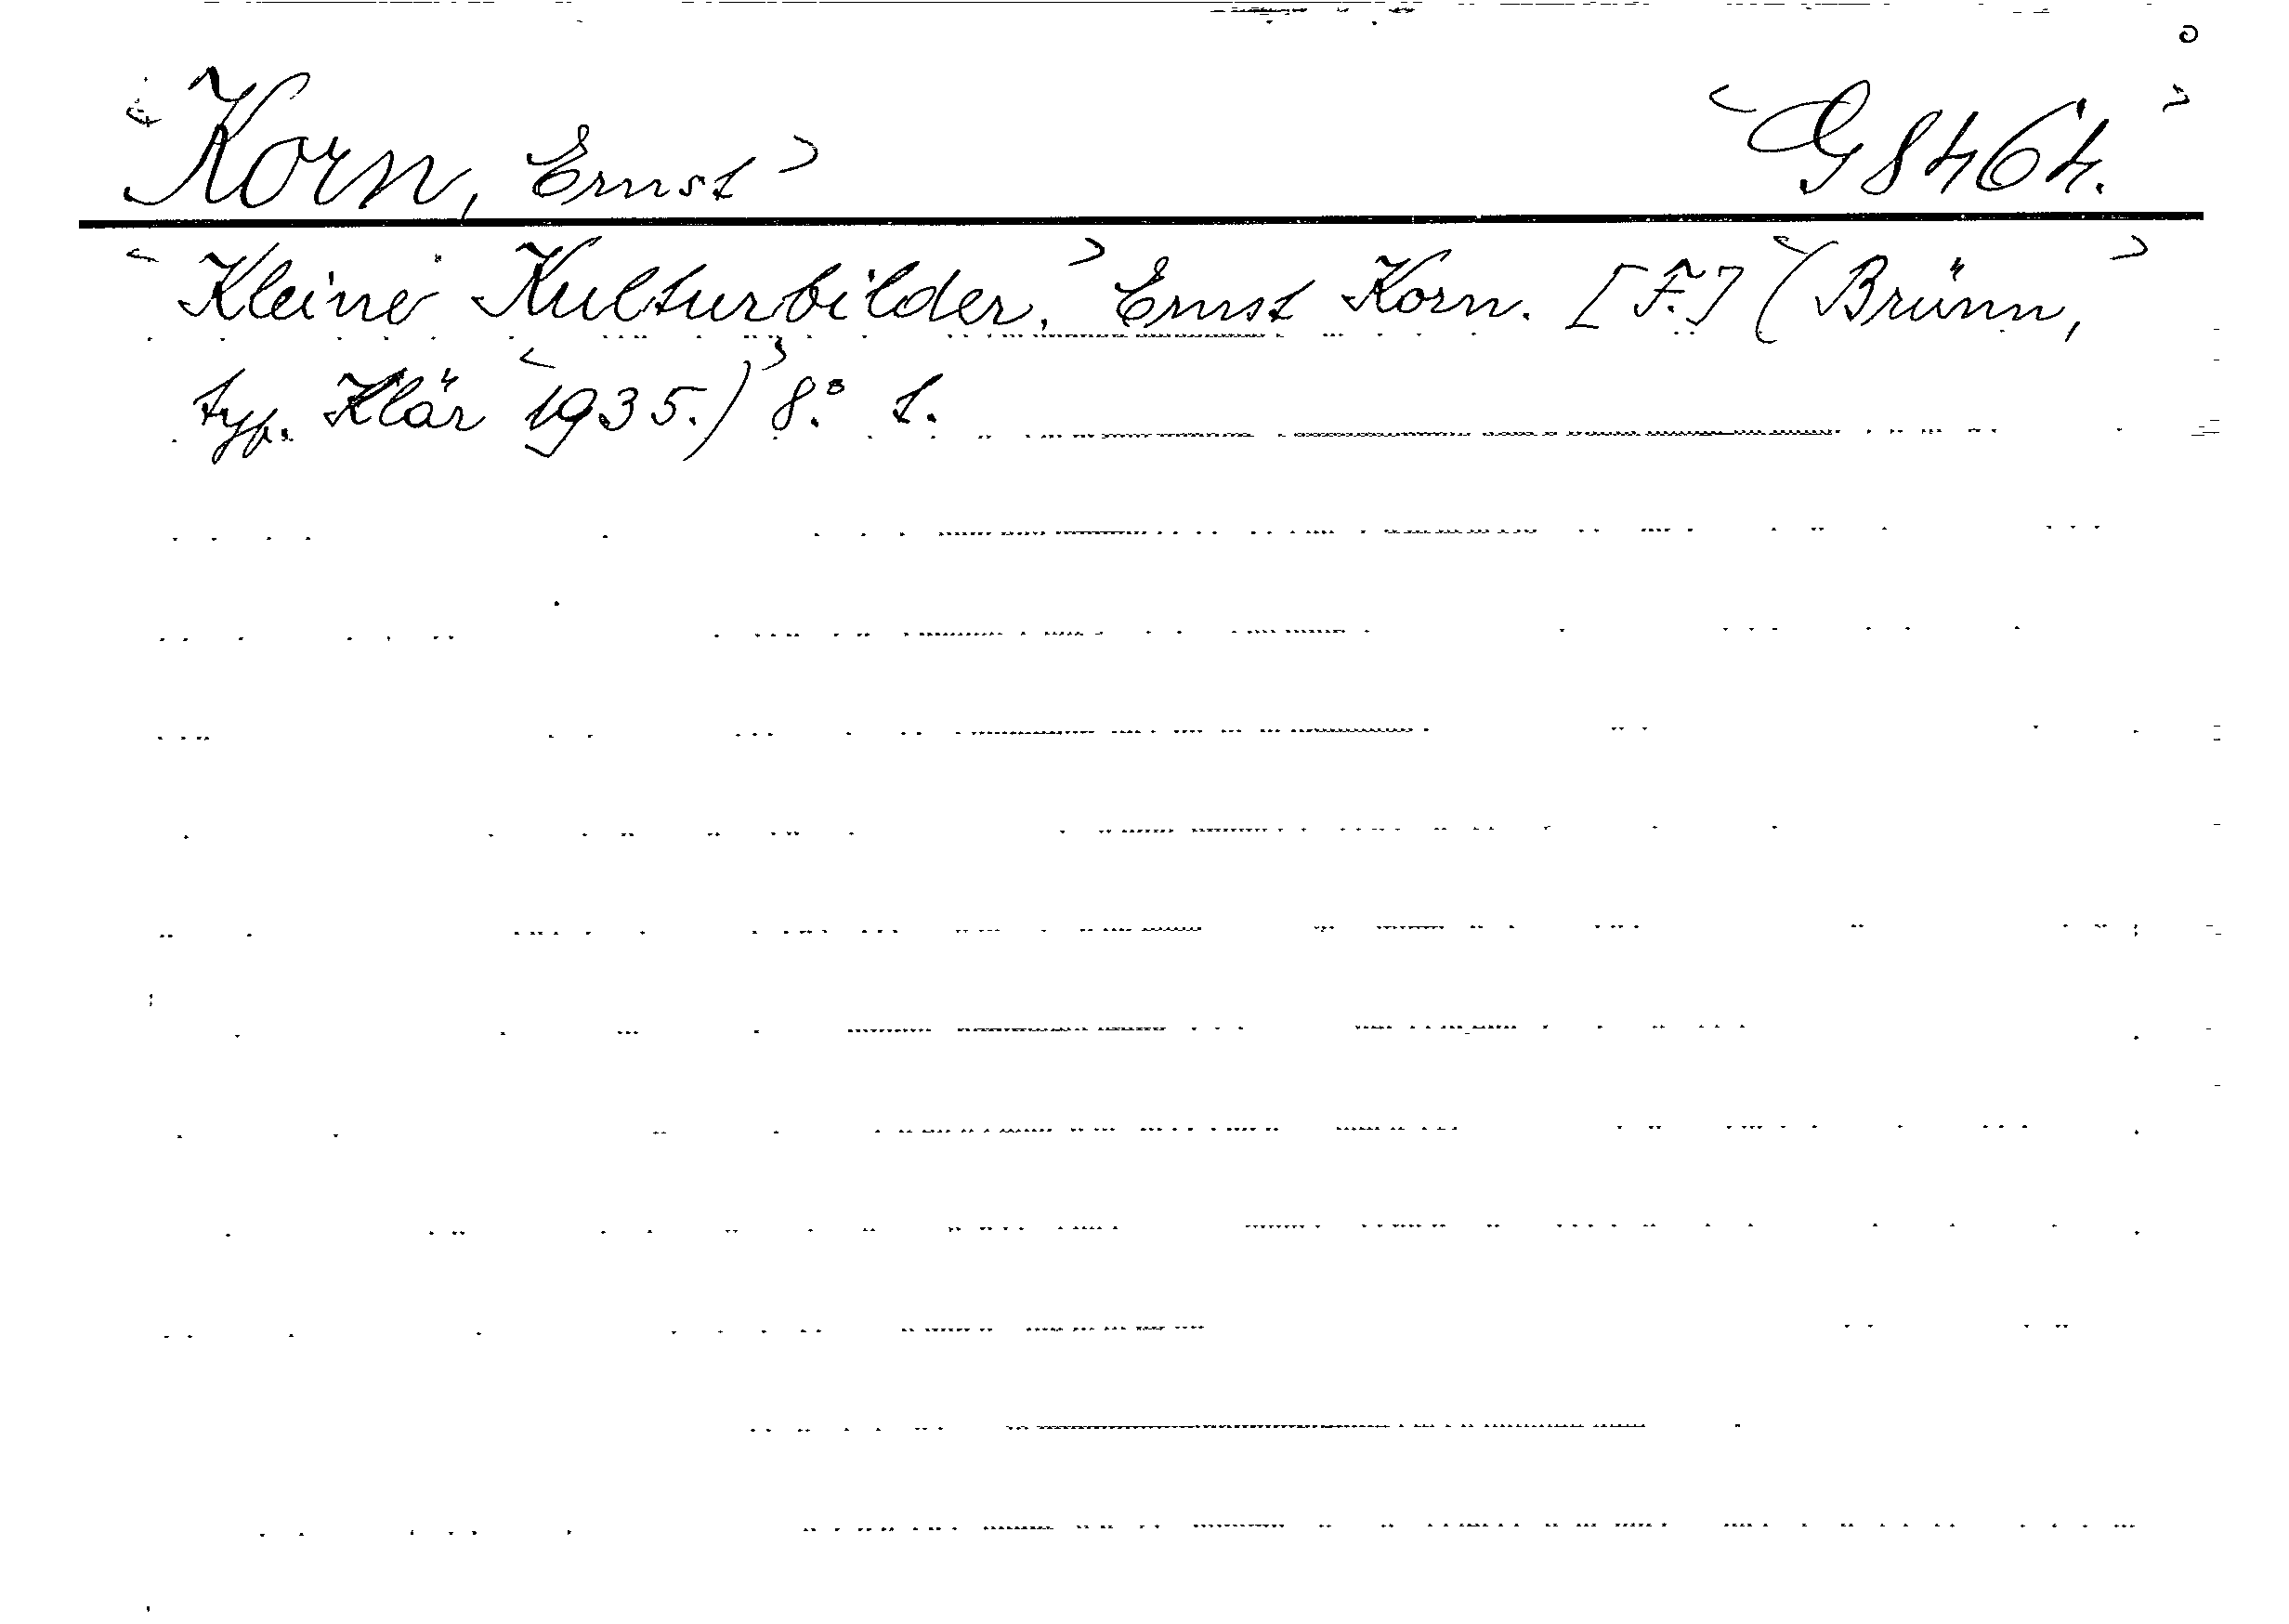 <Korn, Ernst> <G 8464.>
<Kleine Kulturbilder.> Ernst Korn. [F.] <(Brünn,>
typ. Klär <1935.)> 8.° 1.